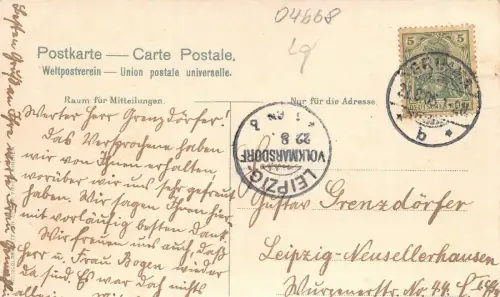 04668
Postkarte — Carte Postale.
Weltpostverein — Union postale universelle.
Raum für Mitteilungen.
Nur für die Adresse.
5
5
LEIPZIG-
VOLKMARSDORF
22 8
Werter Herr Grenzdörfer!
Das Versprochene haben
wir von Ihnen erhalten,
worüber wir uns sehr gefreut
haben. Wir sagen Ihnen hier
mit vorläufig besten Dank.
Wir freuen uns auch, daß
Herr u. Frau Bogen wieder
da sind. Es war doch nichts
Besten Gruß an Ihre werte Frau
Gustav Grenzdörfer
Leipzig-Neusellerhausen
Wurzenerstr. No. 44